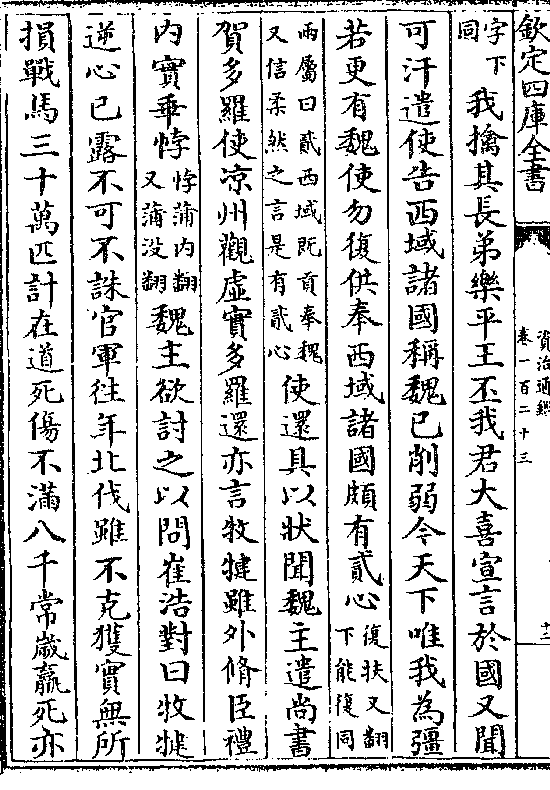 欽定四庫全書
資治通鑑
卷一百二十三
十二
字下
同
我擒其長弟樂平王丕我君大喜宣言於國又聞
可汗遣使告西域諸國稱魏已削弱今天下唯我為彊
若更有魏使勿復供奉西域諸國頗有貳心
復扶又翻
下能復同
兩屬曰貳西域既貢奉魏
又信柔然之言是有貳心
使還具以狀聞魏主遣尚書
賀多羅使涼州觀虛實多羅還亦言牧犍雖外脩臣禮
內實乖悖
悖蒲內翻
又蒲没翻
魏主欲討之以問崔浩對曰牧犍
逆心已露不可不誅官軍往年北伐雖不克獲實無所
損戰馬三十萬匹計在道死傷不滿八千常歲羸死亦